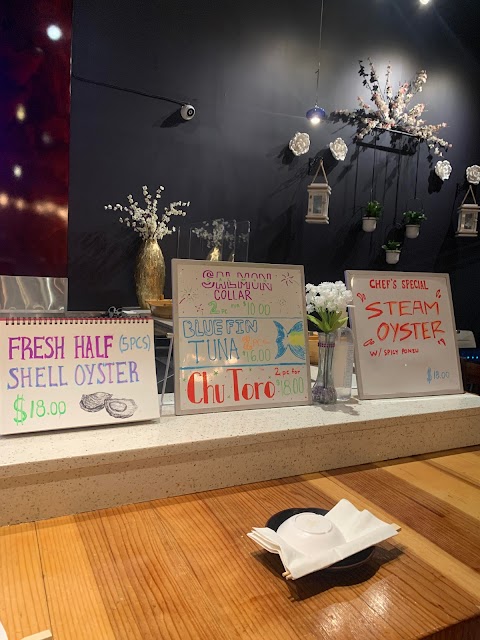 FRESH HALF (5PCS)
SHELL OYSTER
$18.00
SALMON
COLLAR
2 PC FOR $10.00
BLUEFIN
TUNA 2 PC
$16.00
Chu Toro 2 pc for
$18.00
CHEF'S SPECIAL
STEAM
OYSTER
W/ SPICY PONZU
$18.00